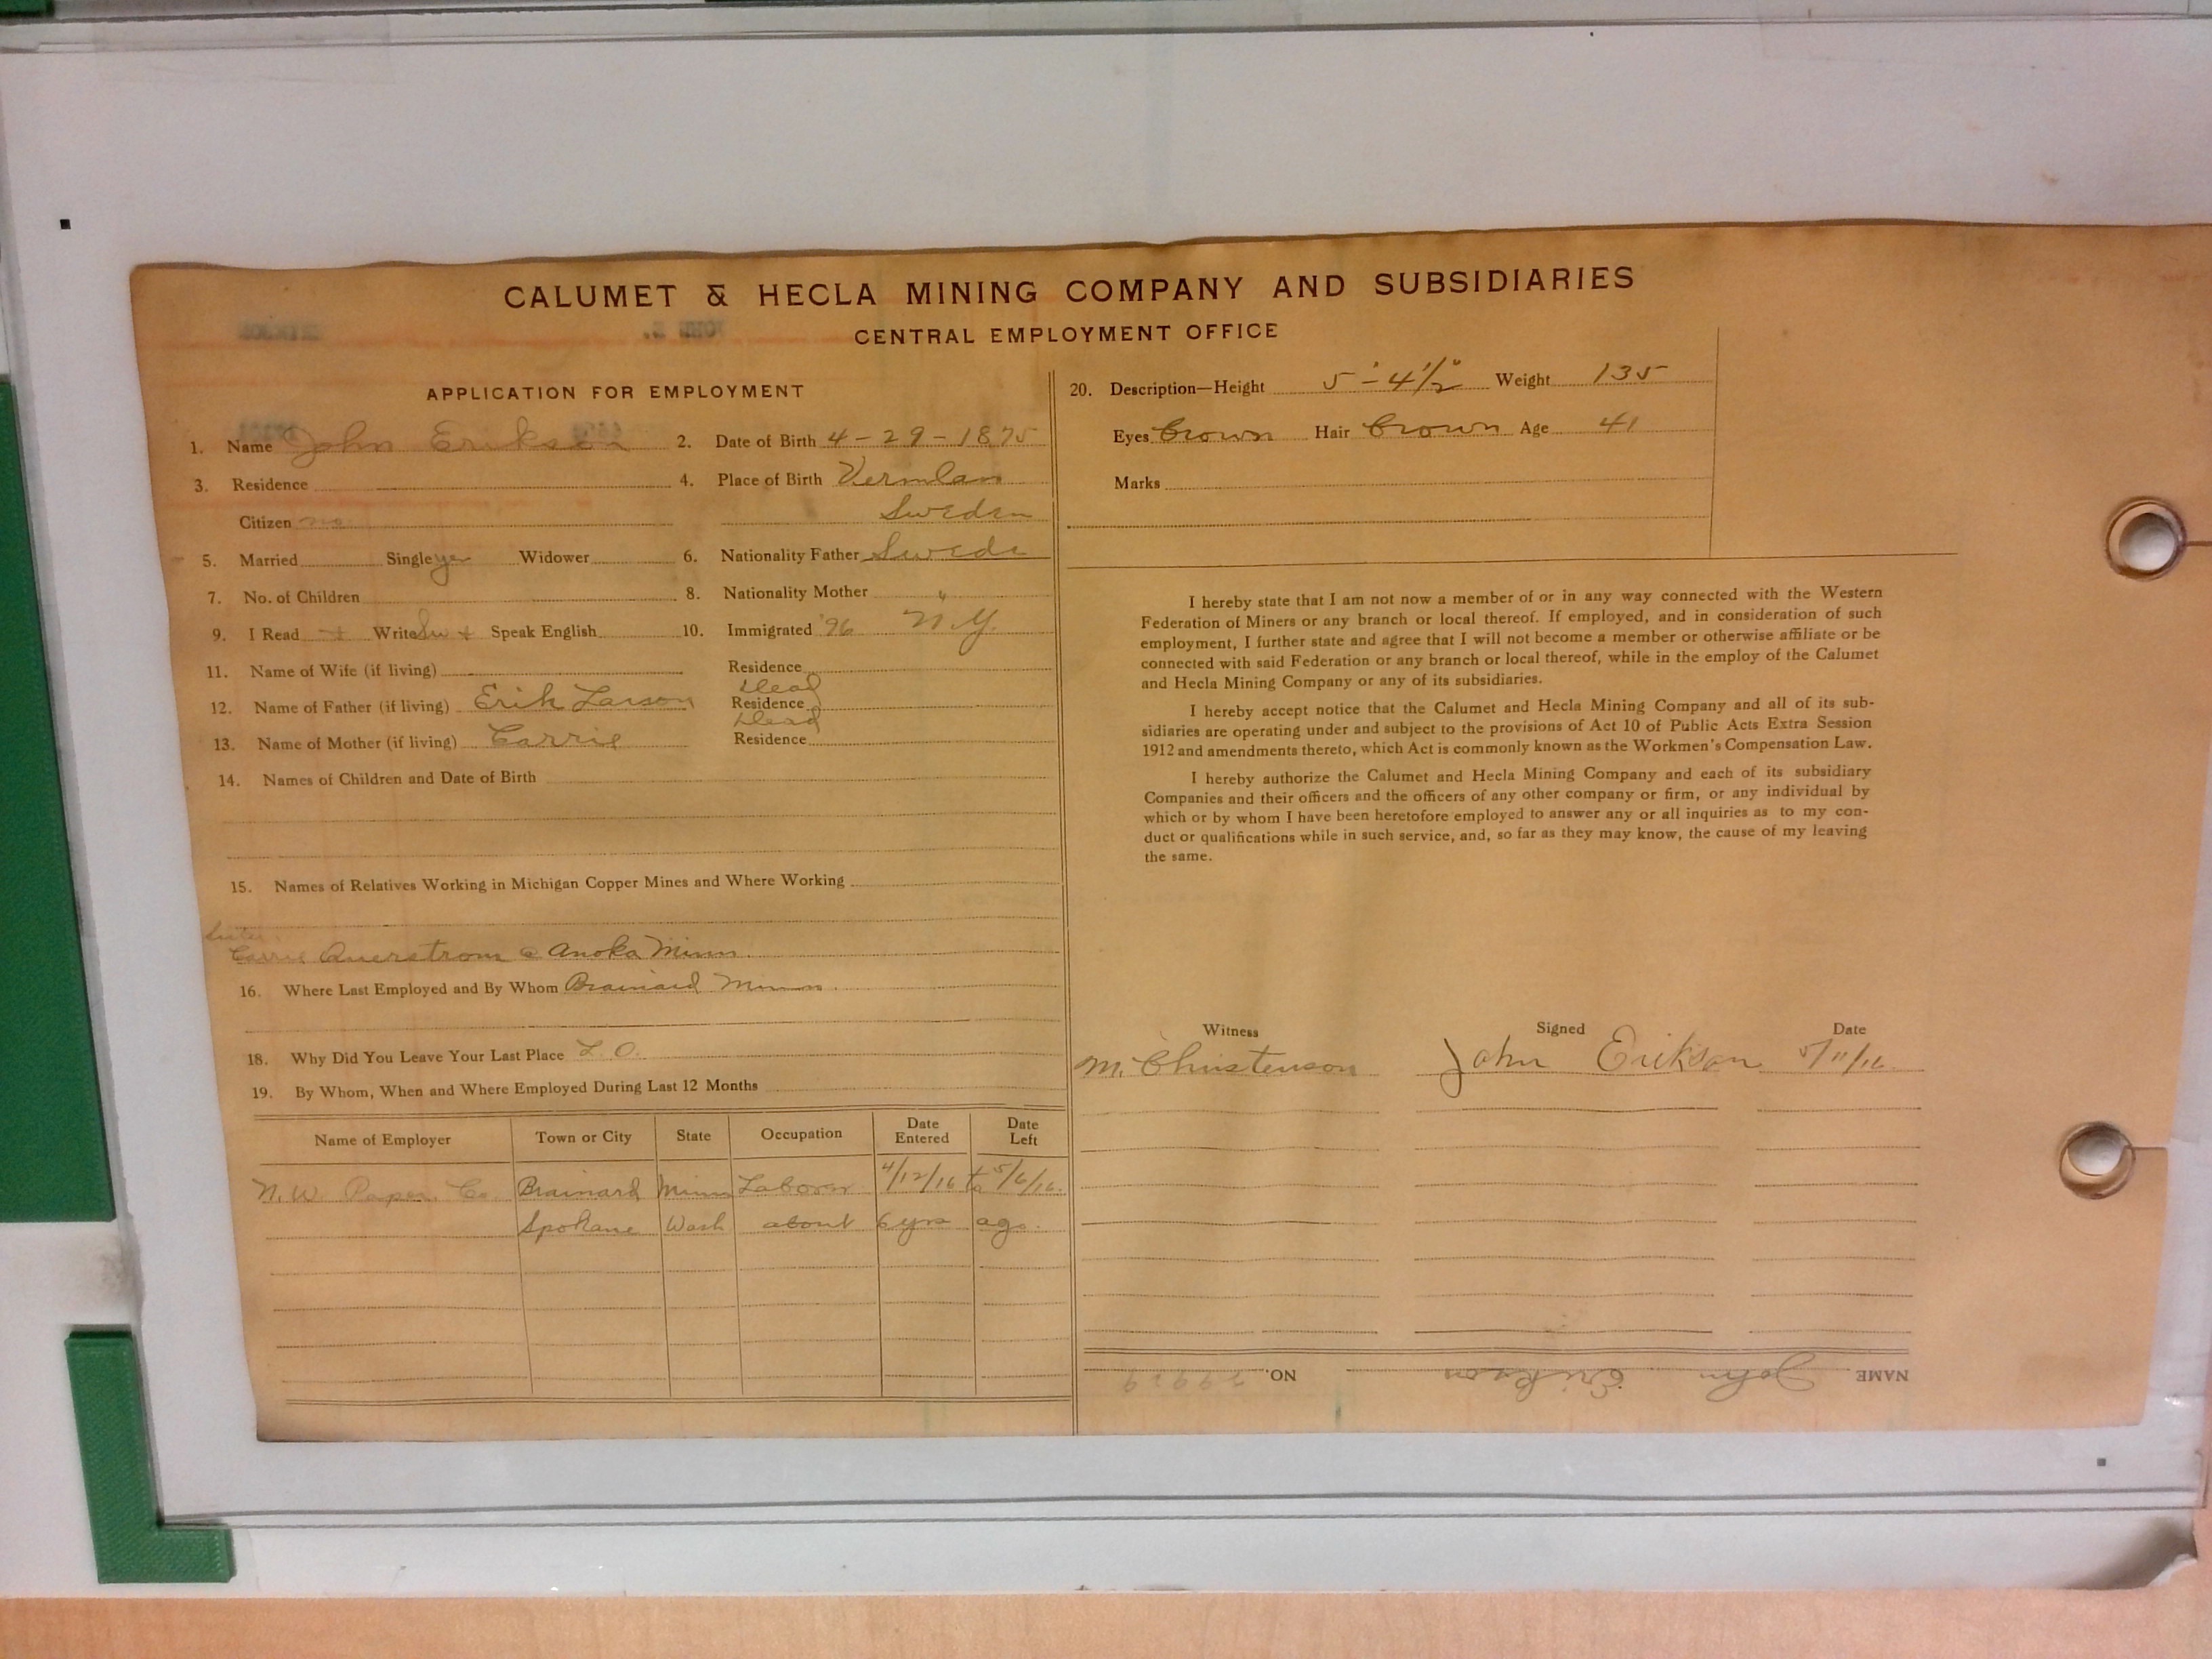 CALUMET & HECLA MINING COMPANY AND SUBSIDIARIES
CENTRAL EMPLOYMENT OFFICE
APPLICATION FOR EMPLOYMENT
1. Name John Erikson 2. Date of Birth 4-29-1875
3. Residence 4. Place of Birth Vermlan
Citizen no Sweden
5. Married Single yes Widower 6. Nationality Father Swede
7. No. of Children 8. Nationality Mother "
9. I Read + Write Sw + Speak English 10. Immigrated '96 N.Y.
11. Name of Wife (if living) Residence
Dead
12. Name of Father (if living) Erik Larson Residence
Dead
13. Name of Mother (if living) Carrie Residence
14. Names of Children and Date of Birth
15. Names of Relatives Working in Michigan Copper Mines and Where Working
Sister
Carrie Querstrom @ Anoka Minn.
16. Where Last Employed and By Whom Brainard Minn
18. Why Did You Leave Your Last Place L.O.
19. By Whom, When and Where Employed During Last 12 Months
Name of Employer Town or City State Occupation Date Entered Date Left
N.W. Paper Co Brainard Minn Laborer 4/12/16 to 5/6/16.
Spokane Wash about 6 yrs ago.
20. Description—Height 5'-4 1/2" Weight 135
Eyes brown Hair brown Age 41
Marks
I hereby state that I am not now a member of or in any way connected with the Western
Federation of Miners or any branch or local thereof. If employed, and in consideration of such
employment, I further state and agree that I will not become a member or otherwise affiliate or be
connected with said Federation or any branch or local thereof, while in the employ of the Calumet
and Hecla Mining Company or any of its subsidiaries.
I hereby accept notice that the Calumet and Hecla Mining Company and all of its sub-
sidiaries are operating under and subject to the provisions of Act 10 of Public Acts Extra Session
1912 and amendments thereto, which Act is commonly known as the Workmen's Compensation Law.
I hereby authorize the Calumet and Hecla Mining Company and each of its subsidiary
Companies and their officers and the officers of any other company or firm, or any individual by
which or by whom I have been heretofore employed to answer any or all inquiries as to my con-
duct or qualifications while in such service, and, so far as they may know, the cause of my leaving
the same.
Witness Signed Date
M. Christenson John Erikson 5/11/16
NAME John Erikson NO.